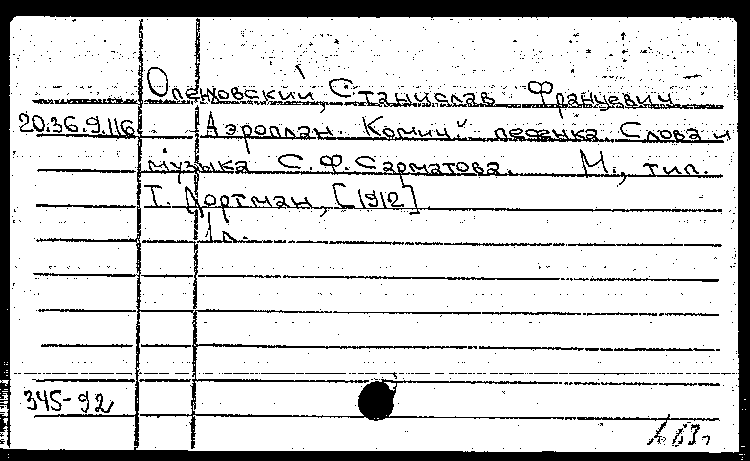 Опеньховский, Станислав Францевич
20.36.9.116 Аэроплан. Комич. песенка. Слова и
музыка С.Ф. Сарматова. М., тип.
Т. Дортман, [1912]
1 л.
345-92